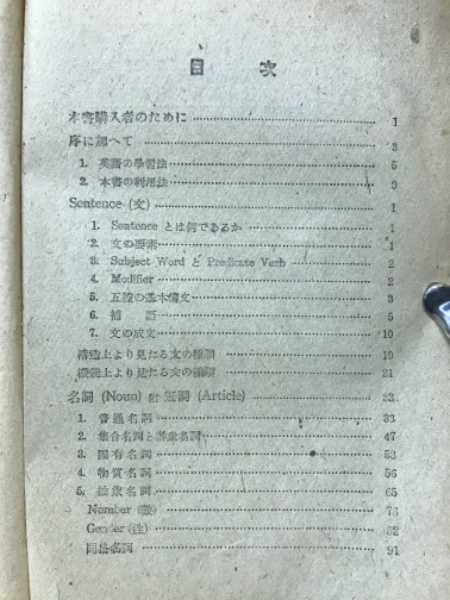 目次
本書購入者のために 1
序に加へて 3
1. 英語の學習法 5
2. 本書の利用法 9
Sentence (文) 1
1. Sentence とは何であるか 1
2. 文の要素 1
3. Subject Word と Predicate Verb 2
4. Modifier 2
5. 五種の基本構文 3
6. 補語 5
7. 文の成文 10
構造上より見たる文の種類 19
機能上より見たる文の種類 21
名詞 (Noun) 附 冠詞 (Article) 33
1. 普通名詞 33
2. 集合名詞と群衆名詞 47
3. 固有名詞 53
4. 物質名詞 56
5. 抽象名詞 65
Number (數) 76
Gender (性) 82
同格名詞 91